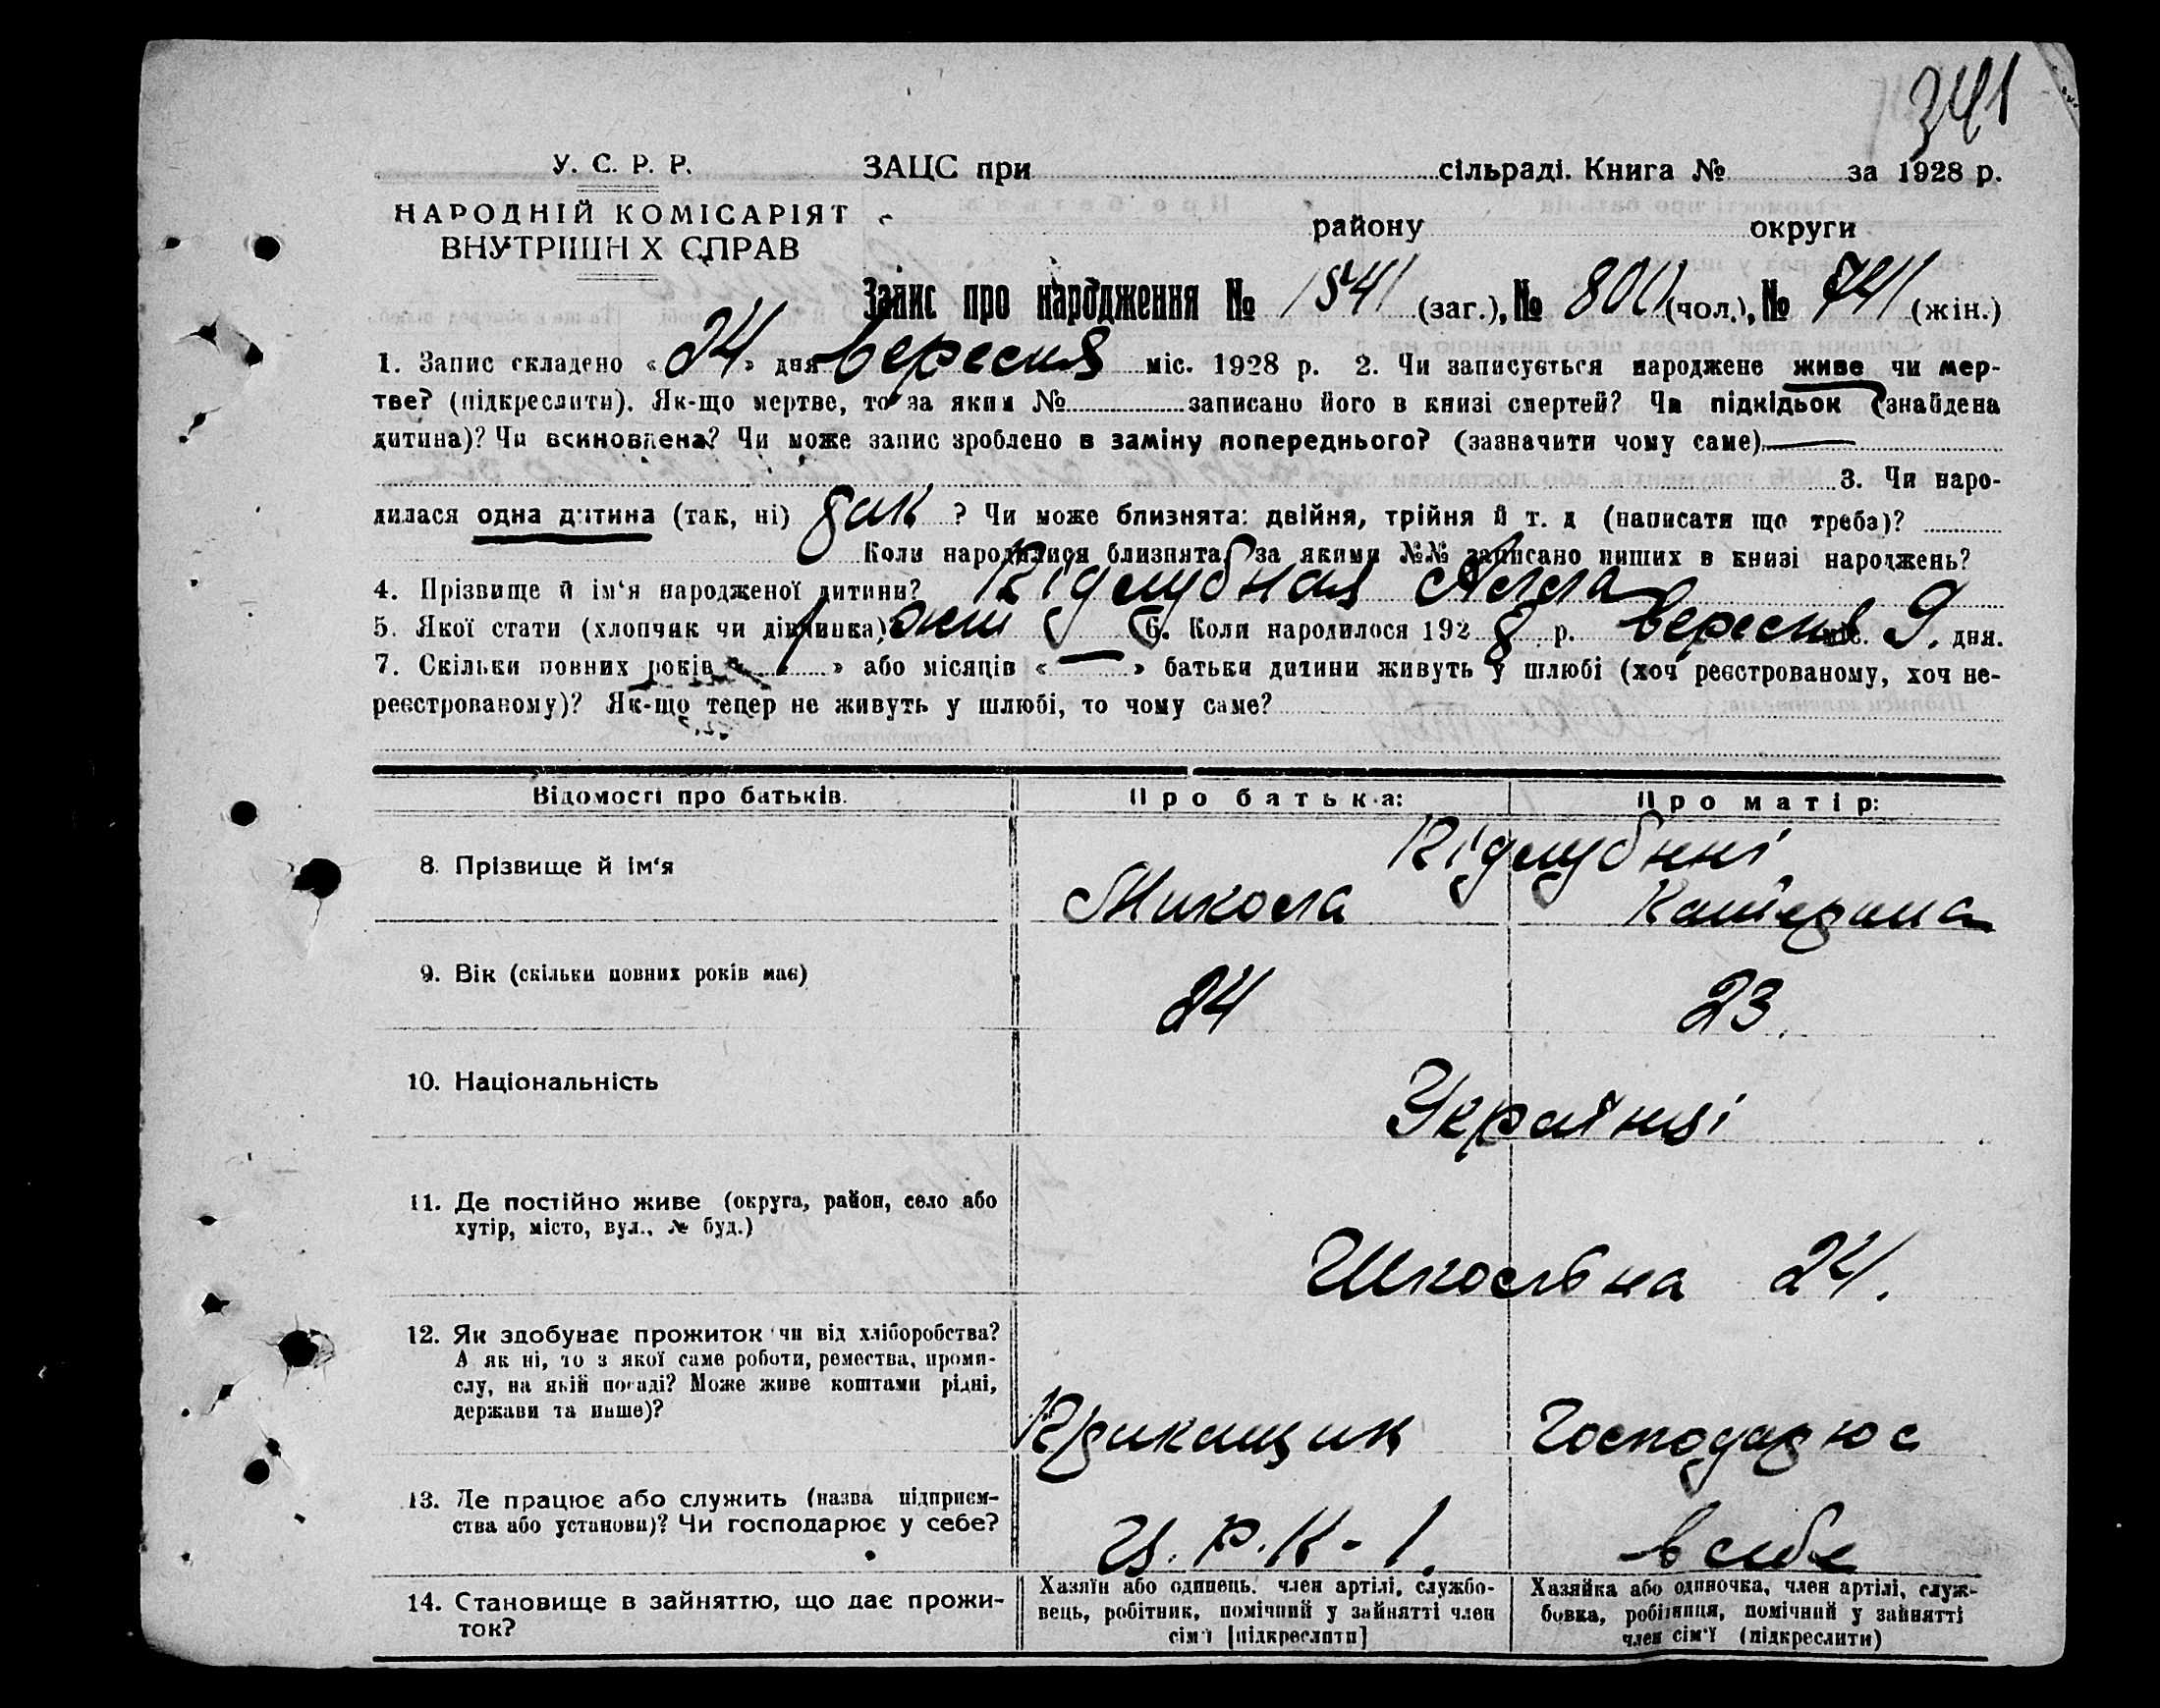 341
У. С. Р. Р. ЗАЦС при сільраді. Книга № за 1928 р.
НАРОДНІЙ КОМІСАРІЯТ району округи
ВНУТРІШН Х СПРАВ
Запис про народження № 1541 (заг.), № 800 (чол.), № 741 (жін.)
1. Запис складено « 24 » дня вересня міс. 1928 р. 2. Чи записується народжене живе чи мер-
тве? (підкреслити). Як-що мертве, то за яким № записано його в книзі смертей? Чи підкідьок (знайдена
дитина)? Чи всиновлена? Чи може запис зроблено в заміну попереднього? (зазначити чому саме) —
3. Чи наро-
дилася одна дитина (так, ні) так ? Чи може близнята: двійня, трійня й т. д (написати що треба)?
Коли народилися близнята за якими №№ записано инших в книзі народжень?
4. Прізвище й ім‘я народженої дитини? Підлубная Алла
5. Якої стати (хлопчик чи дівчинка) жін 6. Коли народилося 192 8 р. вересня міс. 9. дня.
7. Скільки повних років « 1 » або місяців « — » батьки дитини живуть у шлюбі (хоч реєстрованому, хоч не-
реєстрованому)? Як-що тепер не живуть у шлюбі, то чому саме?
Відомості про батьків. Про батька: Про матір:
Підлубнні
8. Прізвище й ім‘я Микола Катерина
9. Вік (скільки повних років має) 24 23.
10. Національність Українці
11. Де постійно живе (округа, район, село або
хутір, місто, вул., № буд.)
Шкільна 24.
12. Як здобуває прожиток чи від хліборобства?
А як ні, то з якої саме роботи, ремества, проми-
слу, на якій посаді? Може живе коштами рідні,
держави та инше)?
Прикащик Господарює
13. Де працює або служить (назва підприєм-
ства або установи)? Чи господарює у себе?
Ц.Р.К-1. в себе
14. Становище в зайняттю, що дає прожи-
ток?
Хазяїн або одинець, член артілі, службо-
вець, робітник, помічний у зайнятті член
сім‘ї [підкреслити]
Хазяйка або одиночка, член артілі, служ-
бовка, робітниця, помічний у зайнятті
член сім‘ї (підкреслити)